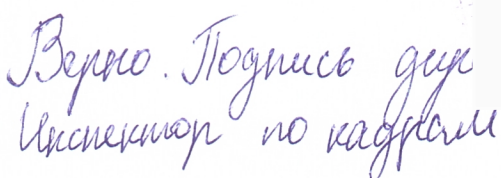 Верно. Подпись дир
Инспектор по кадрам